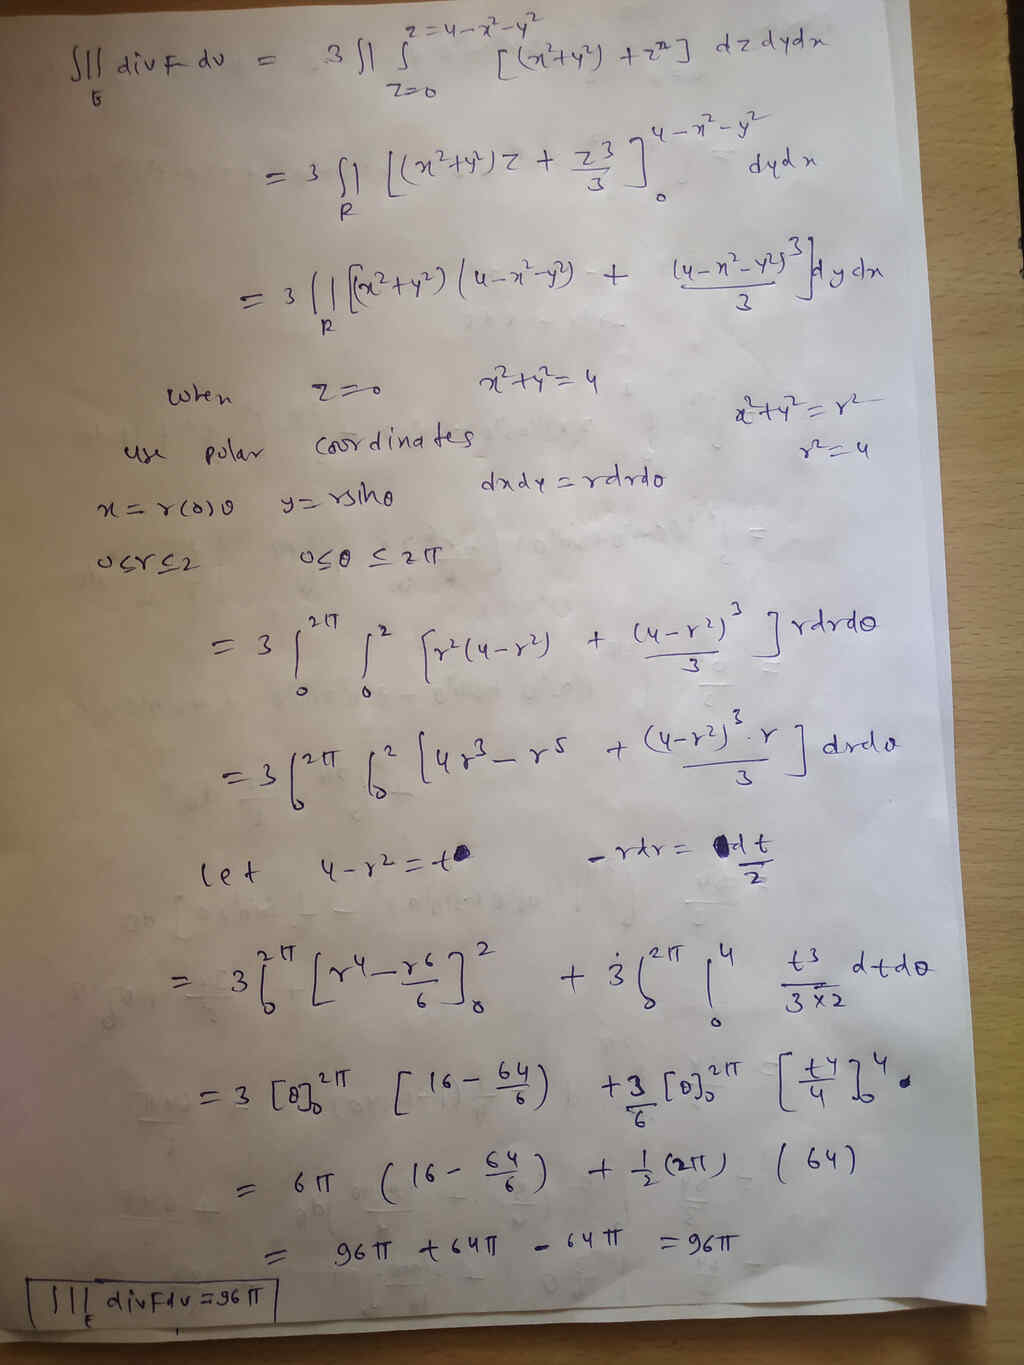 ∭_E div F dv = 3 ∬ ∫_{z=0}^{z=4-x²-y²} [(x²+y²) + z²] dz dy dx
= 3 ∬_R [(x²+y²)z + z³/3]_0^{4-x²-y²} dy dx
= 3 ∬_R [(x²+y²)(4-x²-y²) + (4-x²-y²)³/3] dy dx
when z=0 x²+y²=4
x²+y²=r²
use polar coordinates r²=4
x=rcosθ y=rsinθ dxdy=rdrdθ
0≤r≤2 0≤θ≤2π
= 3 ∫_0^{2π} ∫_0^2 [r²(4-r²) + (4-r²)³/3] rdrdθ
= 3 ∫_0^{2π} ∫_0^2 [4r³-r⁵ + (4-r²)³·r/3] drdθ
let 4-r²=t -rdr = dt/2
= 3 ∫_0^{2π} [r⁴-r⁶/6]_0^2 + 3 ∫_0^{2π} ∫_0^4 t³/(3×2) dtdθ
= 3 [θ]_0^{2π} [16-64/6) + 3/6 [θ]_0^{2π} [t⁴/4]_0^4.
= 6π (16-64/6) + 1/2 (2π) (64)
= 96π + 64π - 64π = 96π
∭_E div F dv = 96π